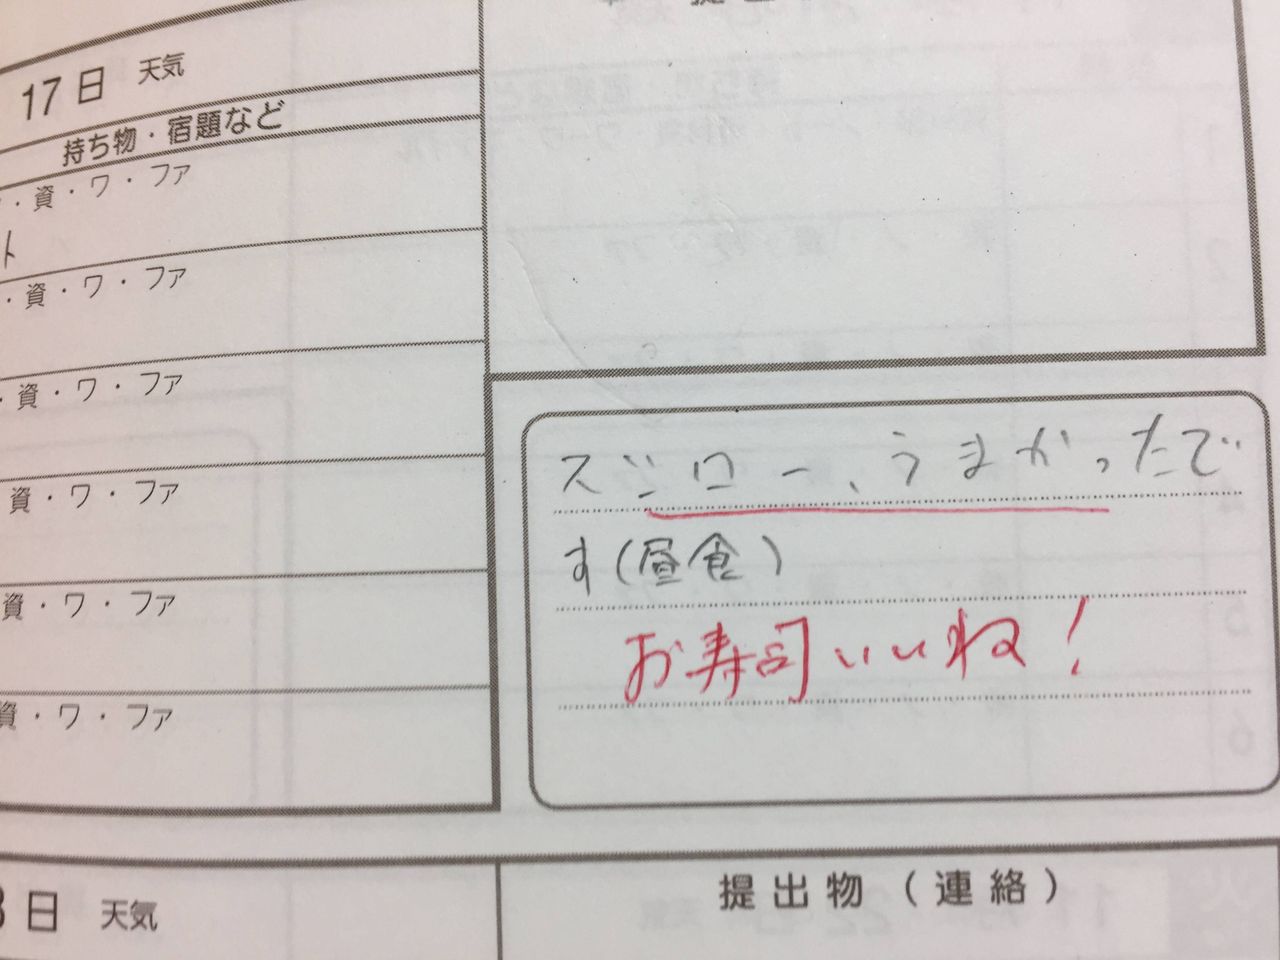 17日 天気
持ち物・宿題など
・資・ワ・ファ
ト
・資・ワ・ファ
・資・ワ・ファ
資・ワ・ファ
資・ワ・ファ
資・ワ・ファ
スシロー、うまかったで
す(昼食)
お寿司いいね!
日 天気
提出物(連絡)